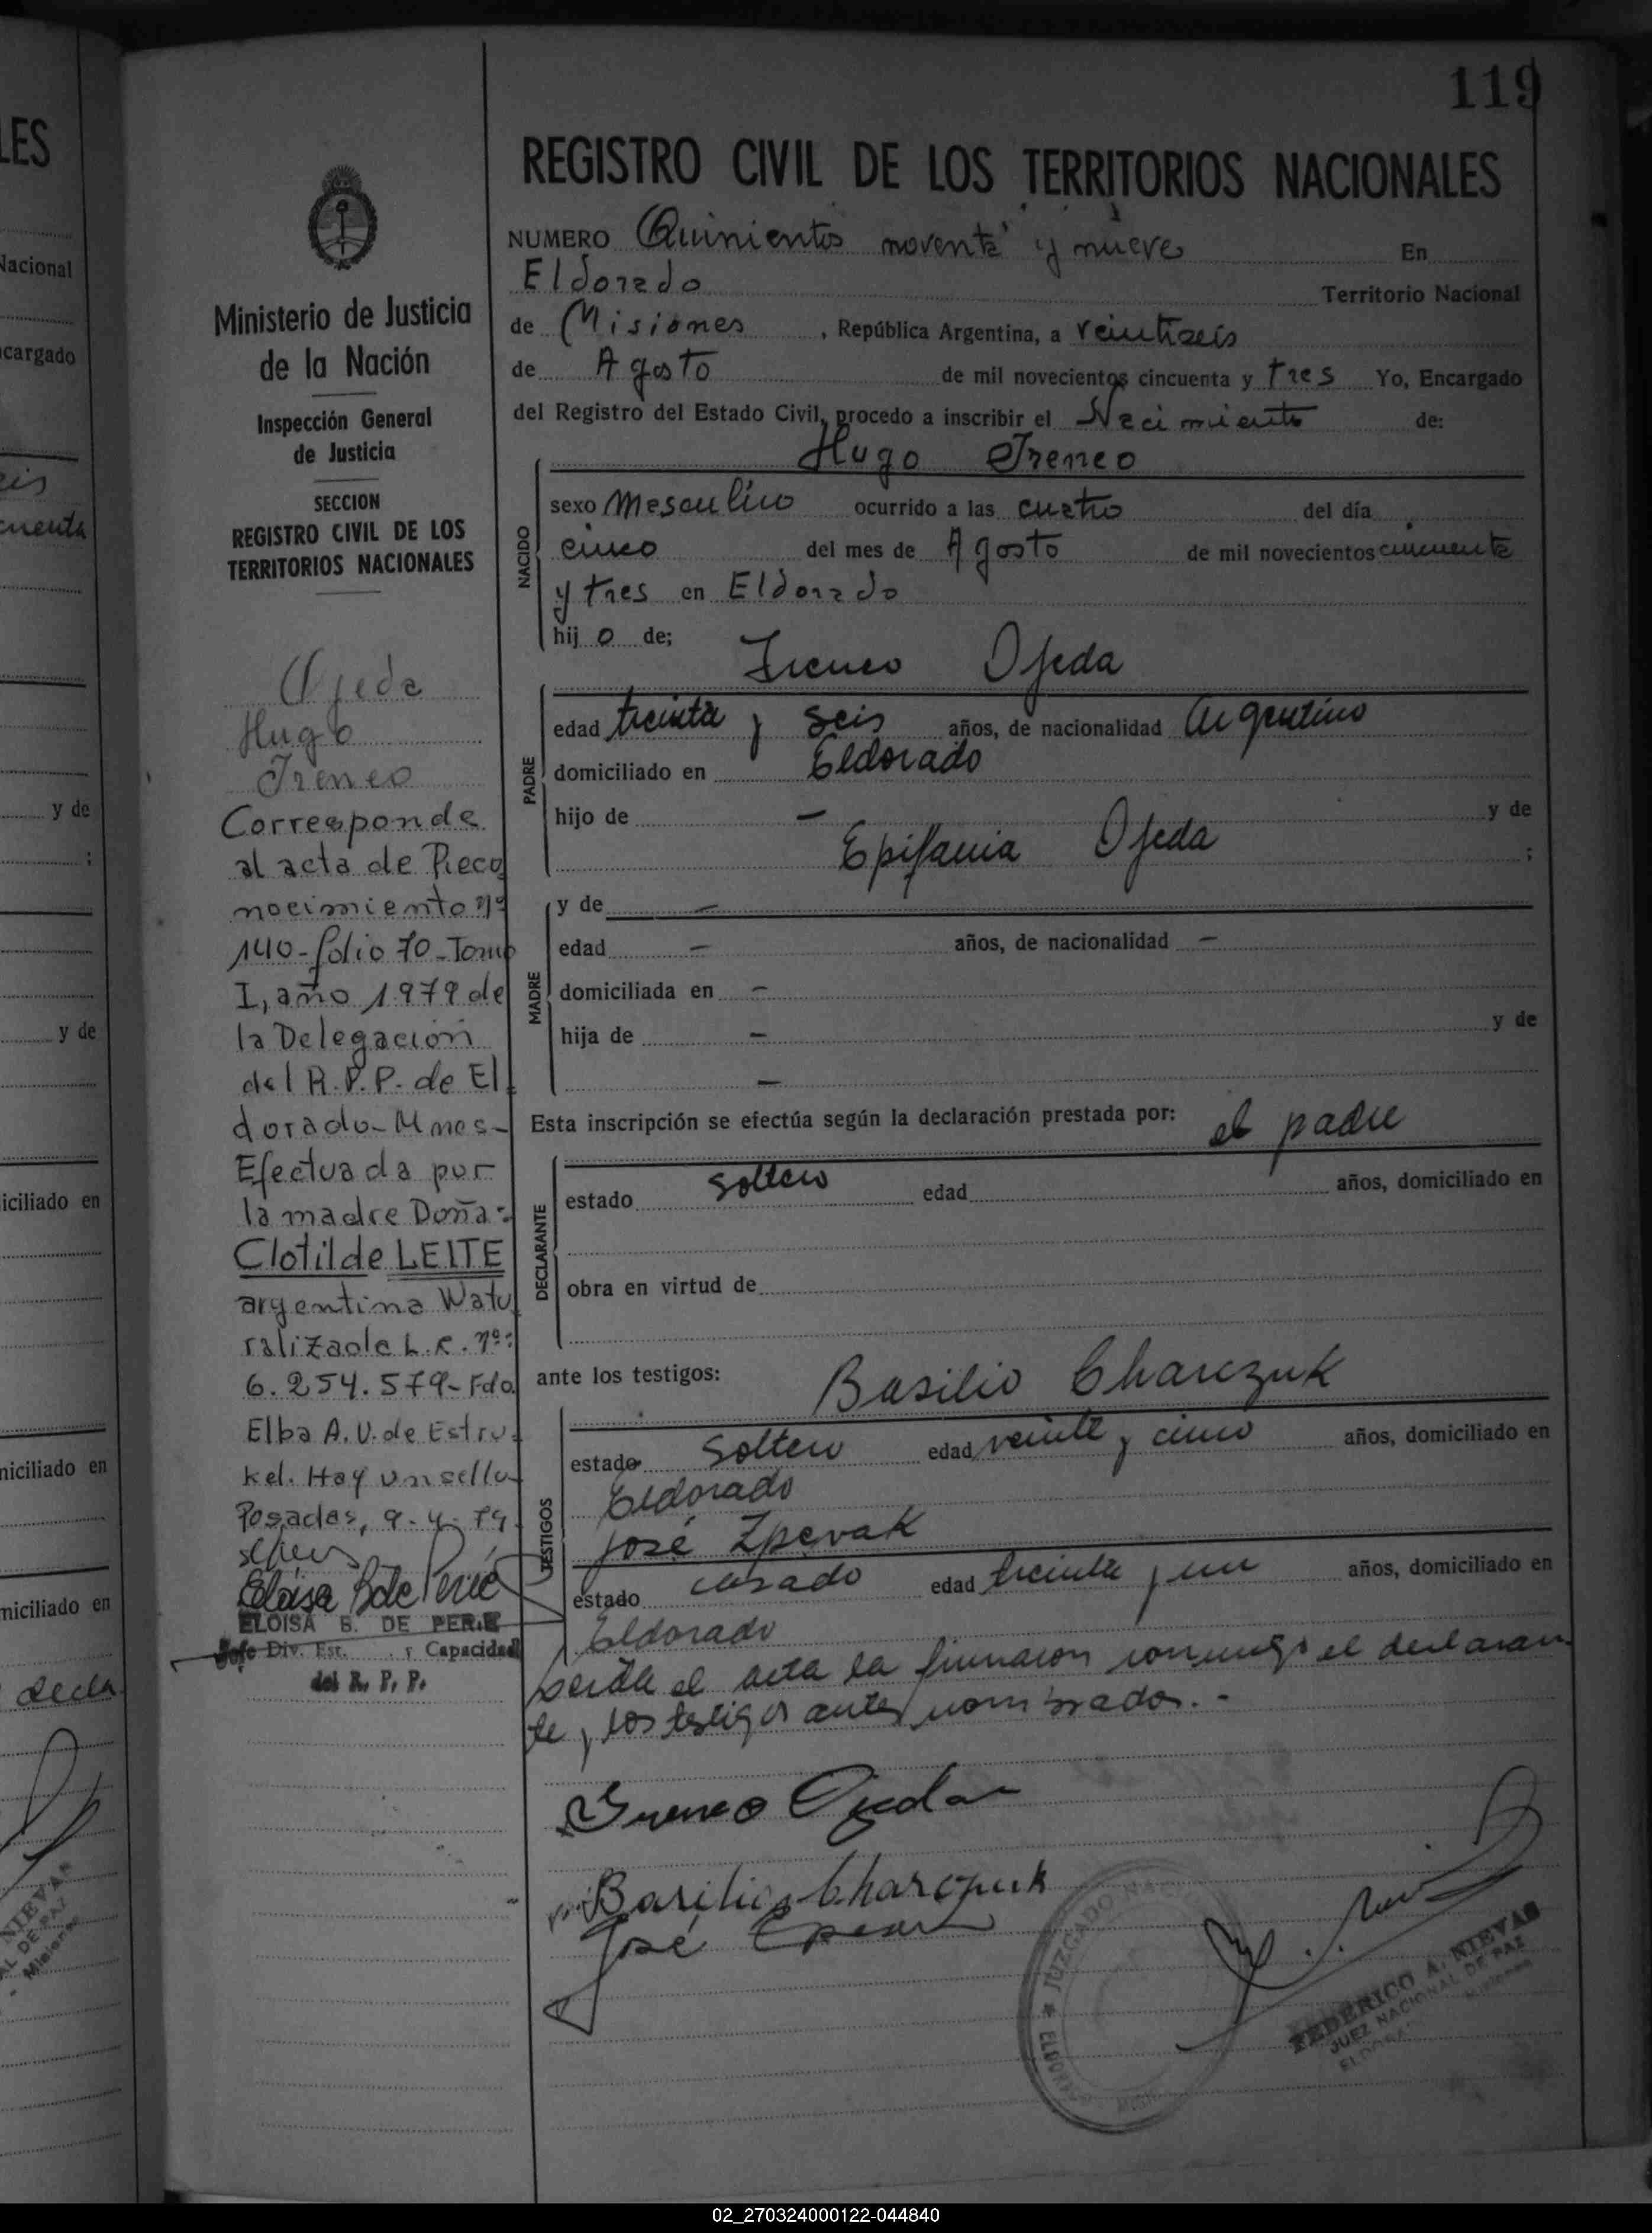 119
REGISTRO CIVIL DE LOS TERRITORIOS NACIONALES
NUMERO Quinientos noventa y nueve En
Eldorado Territorio Nacional
de Misiones, República Argentina, a veintiseis
de Agosto de mil novecientos cincuenta y tres Yo, Encargado
del Registro del Estado Civil, procedo a inscribir el Nacimiento de:
Hugo Ireneo
NACIDO
sexo Masculino ocurrido a las cuatro del día
cinco del mes de Agosto de mil novecientos cincuenta
y tres en Eldorado
hij o de;
Ireneo Ojeda
PADRE
edad treinta y seis años, de nacionalidad Argentino
domiciliado en Eldorado
hijo de — y de
Epifania Ojeda ;
MADRE
y de —
edad — años, de nacionalidad —
domiciliada en —
hija de — y de
—
Esta inscripción se efectúa según la declaración prestada por: el padre
DECLARANTE
estado soltero edad años, domiciliado en
obra en virtud de
ante los testigos: Basilio Charczuk
TESTIGOS
estado soltero edad veinte y cinco años, domiciliado en
Eldorado
José Zpevak
estado casado edad treinta y un años, domiciliado en
Eldorado
Leida el acta la firmaron conmigo el declaran
te y los testigos antes nombrados.-
Ireneo Ojeda
Basilio Charczuk
José
JUZGADO NACIONAL
ELDORADO
FEDERICO A. NIEVAS
JUEZ NACIONAL DE PAZ
ELDORADO Misiones
Ministerio de Justicia
de la Nación
Inspección General
de Justicia
SECCION
REGISTRO CIVIL DE LOS
TERRITORIOS NACIONALES
Ojeda
Hugo
Ireneo
Corresponde
al acta de Reco
nocimiento nº
140-folio 70-Tomo
I, año 1979 de
la Delegación
del R.P.P. de El
dorado-Mnes-
Efectuada por
la madre Doña:
Clotilde LEITE
argentina Natu
ralizada L.C. nº:
6.254.579-Fdo.
Elba A. V. de Estru
kel. Hay un sello-
Posadas, 9-4-79
Eloisa B de Perié
ELOISA B. DE PERIE
Jefe Div. Est. y Capacidad
del R. P. P.
LES
Nacional
cargado
eis
cuenta
y de
;
y de
iciliado en
niciliado en
niciliado en
decla
NIEVAS
AL DE PAZ
Misiones
02_270324000122-044840